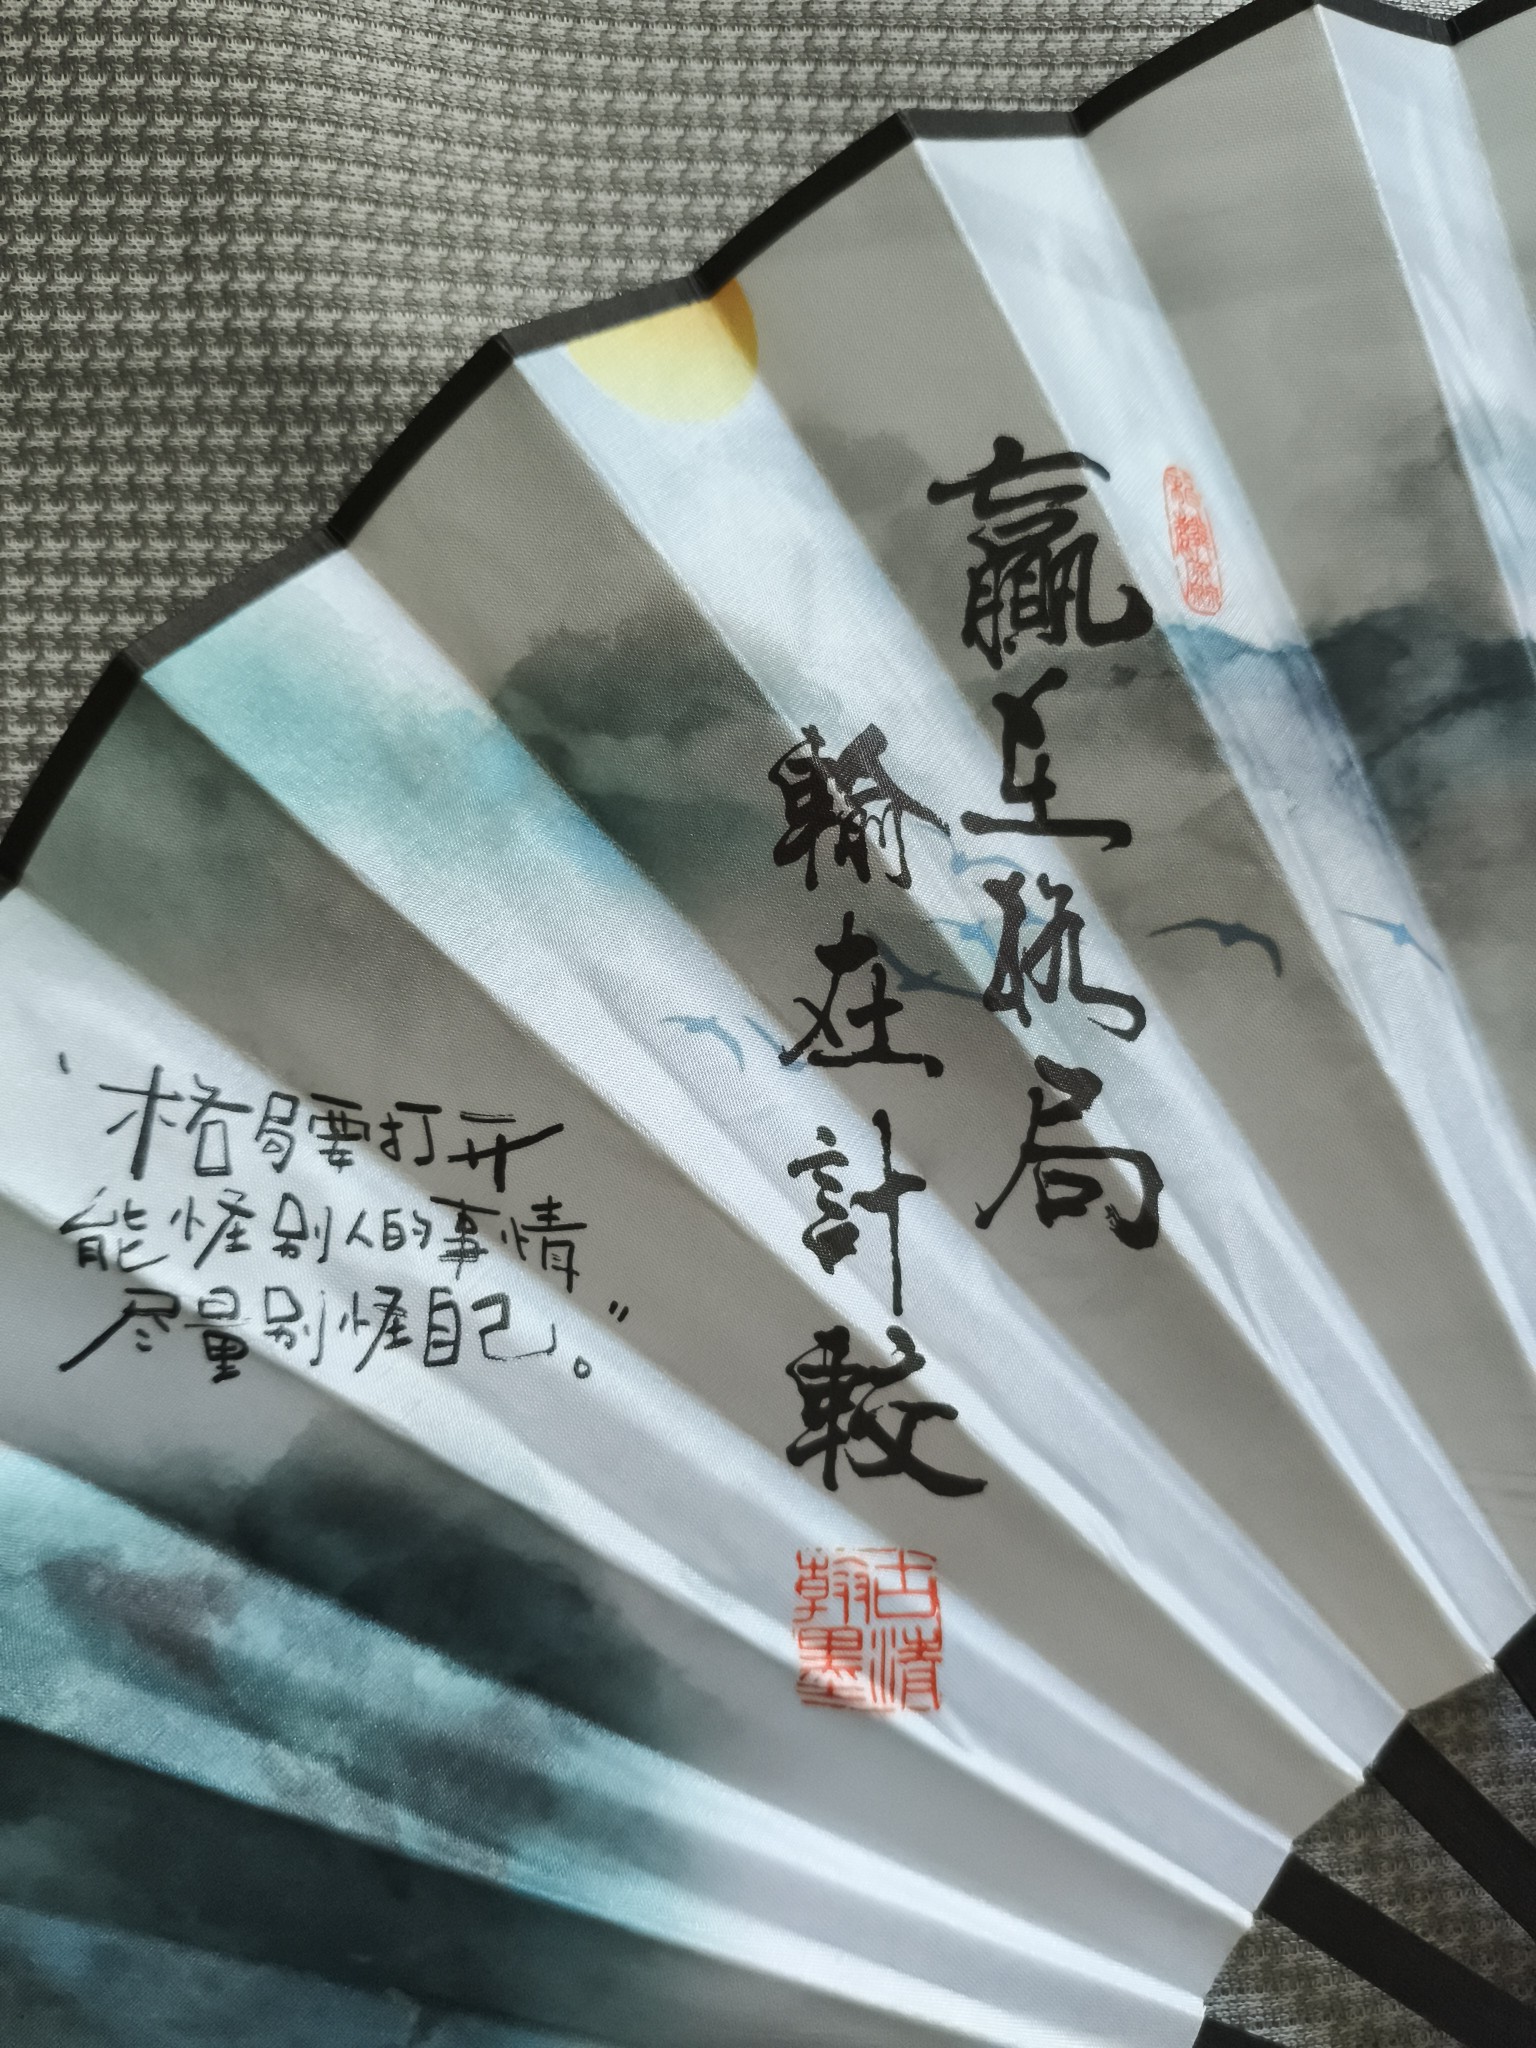 贏在格局
輸在計較
“格局要打开
能怪别人的事情
尽量别怪自己。”
翰墨